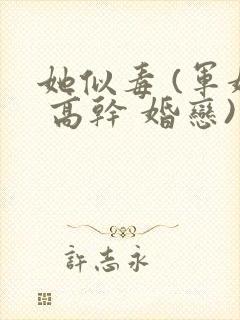 她似毒(軍
高幹 婚戀)
許志永